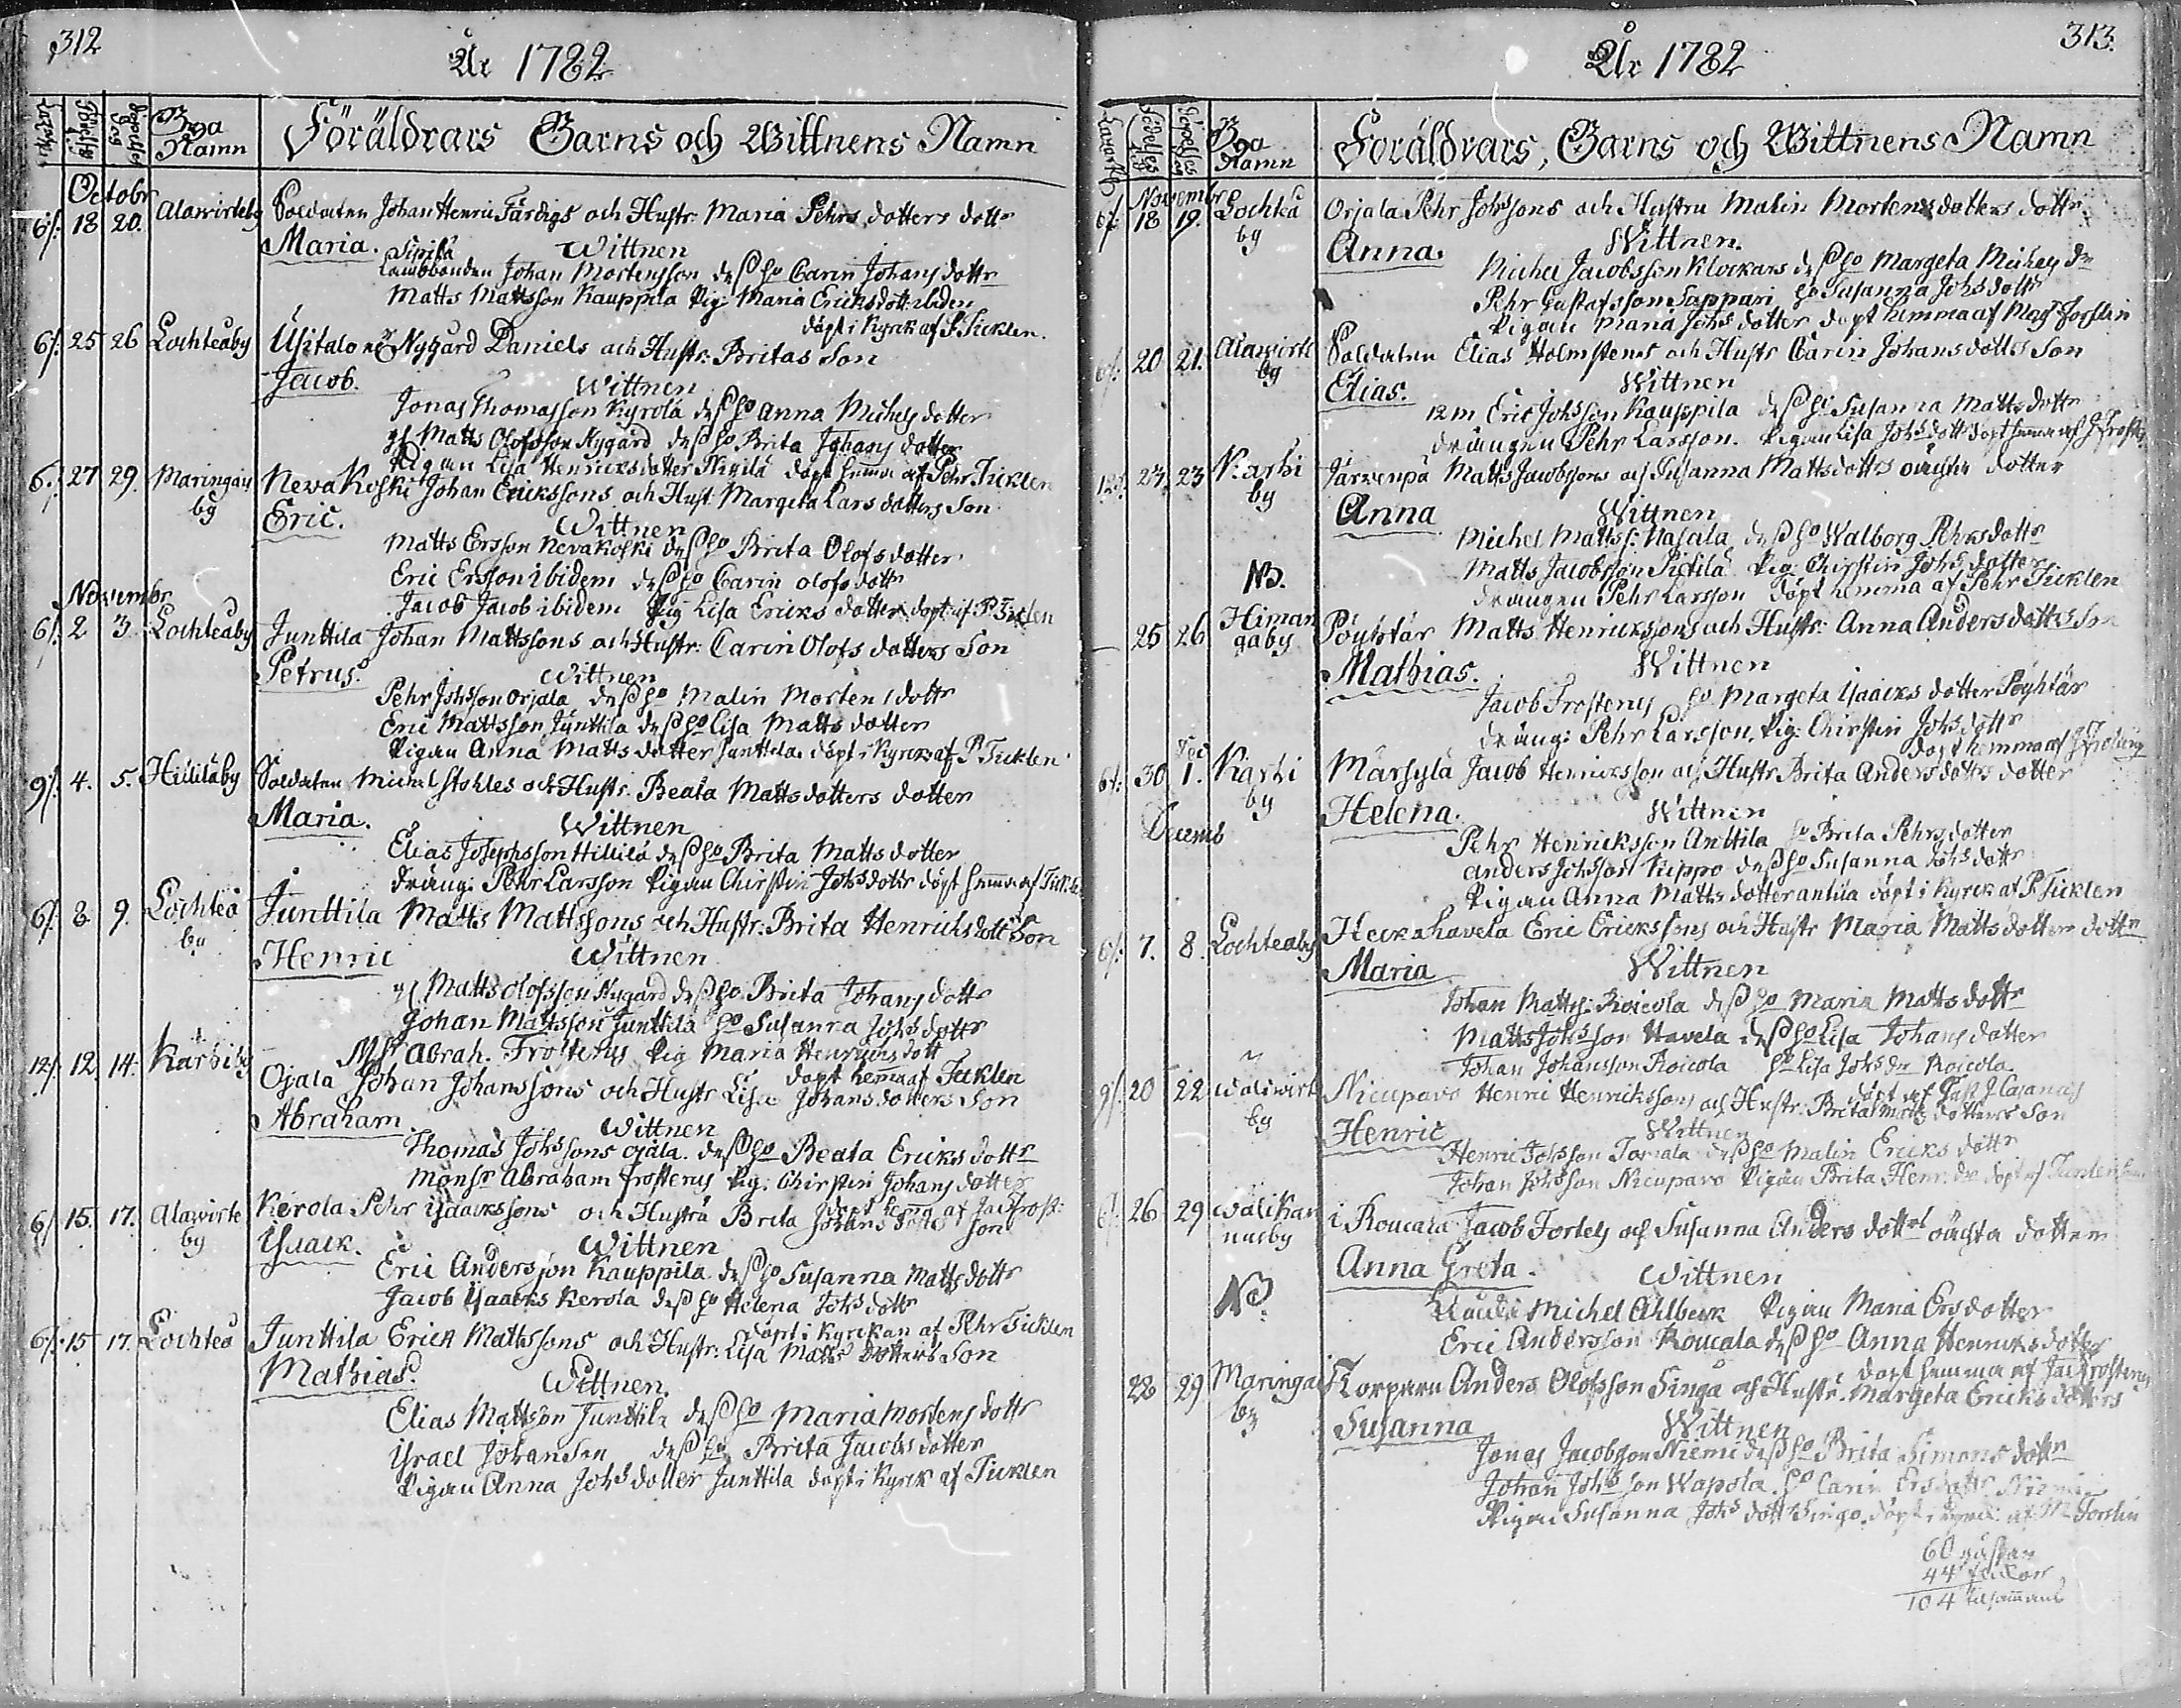 312
År 1782
Bya Namn
Föräldrars Barns och Wittnens Namn
Octobr
6 s. 18 20. Alawirteby Soldaten Johan Henric Färdigs och Hustr: Maria Pehrs dotters dottr
Maria. Wittnen
Landbonden Johan Mortensson dess ho Carin Johans dottr
Matts Mattsson Kauppila Pig: Maria Ericksdottr ibiden
döpt i Kyrck af P. Ticklen.
6 s. 25 26 Lochteåby Ůsitalo Nygård Daniels och Hustr: Britas Son
Jacob. Wittnen
Jonas Thomasson Kyrola dess ho Anna Michels dotter
Matts Olofsson Nygård dess ho Brita Johans dotter
Pigan Lisa Henricksdotter döpt hemma af Pehr Ticklen
6. 27 29. Maringais by Nevakoski Johan Erickssons och Hust: Margeta Lars dotters Son
Eric. Wittnen
Matts Ersson Nevakoski dess ho Brita Olofs dotter
Eric Ersson ibidem dess ho Carin olofs dottr
Jacob Jacob ibidem Pig Lisa Ericks dotter döpt af P. Ticklen
Novembr
6 s. 2 3. Lochteåby Junttila Johan Mattssons och Hustr: Carin Olofs dotters Son
Petrus. Wittnen
Pehr Johsson Orjala dess ho Malin Mortens dottr
Eric Mattsson Junttila dess ho Lisa Matts dotter
Pigan Anna Matts dotter Junttila döpt i Kyrck af P. Ticklen
9 s. 4. 5. Hilliläby Soldaten Michel Stohles och Hustr: Beata Matts dotters dotter
Maria. Wittnen
Elias Josephsson Hillilä dess ho Brita Matts dotter
dräng: Pehr Larsson Pigan Chirstin Johs dottr döpt hemma af Tickle
6 s. 8 9. Lochteå by Junttila Matts Mattssons och Hustr: Brita Henrichs dott Son
Henric Wittnen
Matts Olofsson Nygård dess ho Brita Johans dottr
Johan Mattsson Junttila ho Susanna Johs dottr
Msr Abrah. Frosterus Pig Maria Henrichs dott
döpt hemma af Ticklen
12 s. 12 14. Karhiby Ojala Johan Johanssons och Hustr Lisa Johans dotters Son
Abraham Wittnen
Thomas Johssons Ojala dess ho Beata Ericks dottr
Monsr Abraham Frosterus Pig: Chirstin Johans dotter
döpt hemma af Jac Frost:
6 s. 15. 17. Alawirte by Kerola Pehr Isaackssons och Hustru Brita Johans dottr Son
Isaack. Wittnen
Eric Andersson Kauppila dess ho Susanna Matts dottr
Jacob Isaacks Kerola dess ho Helena Johs dottr
döpt i Kyrckan af Pehr Ticklen
6 s. 15 17. Lochteå Junttila Erick Mattssons och Hustr: Lisa Matts dotters Son
Mathias. Wittnen.
Elias Mattson Junttila dess ho Maria Mortens dottr
Israel Johanson dess ho Brita Jacobs dotter
Pigan Anna Johs dotter Junttila döpt i Kyrck af Ticklen
313.
År 1782
Bya Namn
Föräldrars, Barns och Wittnens Namn
Novembr
6 s. 18 19. Lochteå by Orjala Pehr Johssons och Hustru Malin Mortens dotters dottr.
Anna. Wittnen.
Michel Jacobsson Klockars dess ho Margeta Michels dr
Pehr Gustafsson Sappari ho Susanna Johs dottr
Pigan Maria Johs dotter döpt hemma af Mag Forslin
6 s. 20 21. Alawirte by Soldaten Elias Holmstens och Hustr Carin Johans dotters Son
Elias. Wittnen
Eric Johsson Kauppila dess ho Susanna Matts dottr
drängen Pehr Larsson. Pigan Lisa Johs dottr döpt hemma af J Froster
12 s. 23 23 Karhi by Järvenpä Matts Jacobssons och Susanna Mattsdotters oächta dotter
Anna Wittnen
Michel Mattss: Nasala dess ho Walborg Pehrsdottr
Matts Jacobsson Pistila Pig: Chirstin Johs dotter
NB. drängen Pehr Larsson döpt hemma af Pehr Ticklen
25 26 Himangaby Pöyhtär Matts Henrickssons och Hustr: Anna Anders dotters Son
Mathias. Wittnen
Jacob Frosterus ho Margeta Isaacks dotter Pöyhtär
dräng: Pehr Larsson, Pig: Chirstin Johs dottr
döpt hemma af J Froterus
6 s. 30 Dec 1. Karhi by Märsylä Jacob Henricksson och Hustr Brita Anders dotters dotter
Helena. Wittnen
Decemb
Pehr Henricksson Anttila ho Brita Pehrs dotter
Anders Johsson Kippo dess ho Susanna Johs dottr
Pigan Anna Matts dotter antila döpt i Kyrck af P. Ticklen
6 s. 7. 8. Lochteåby Heckahavela Eric Erickssons och Hustr Maria Matts dotters dottr
Maria Wittnen
Johan Mattss: Roicola dess ho Maria Matts dottr
Matts Johsson Havela dess ho Lisa Johans dotter
Johan Johansson Roicola ho Lisa Johs dr Roicola.
döpt af Past J Cajanus
9 s. 20 22 Walwirte by Nicuparo Henric Henrickssons och Hustr: Brita Matts dotters Son
Henric Wittnen
Henric Johsson Torvala dess ho Malin Ericks dottr
Johan Johsson Nicuparo Pigan Brita Henr: dr döpt af Ticklen
6 s. 26 29 Walikannusby i Roucala Jacob Fortels och Susanna Anders dottrs oächta dotter
Anna Greta. Wittnen
NB. Michel Ahlbeck Pigan Maria Ersdotter
Eric Andersson Roucala dess ho Anna Henricks dotter
döpt hemma af Jac Frosterus
22 29 Maringais by Korparn Anders Olofsson Singa och Hustr: Margeta Ericks dotters
Susanna Wittnen
Jonas Jacobsson Niemi dess ho Brita Simons dottr
Johan Johsson Wapola ho Carin Ersdottr
Pigan Susanna Johs dottr Singo, döpt i Kyrck: af M Forslin
60 gåssar
44 flickor
104 tilsammans